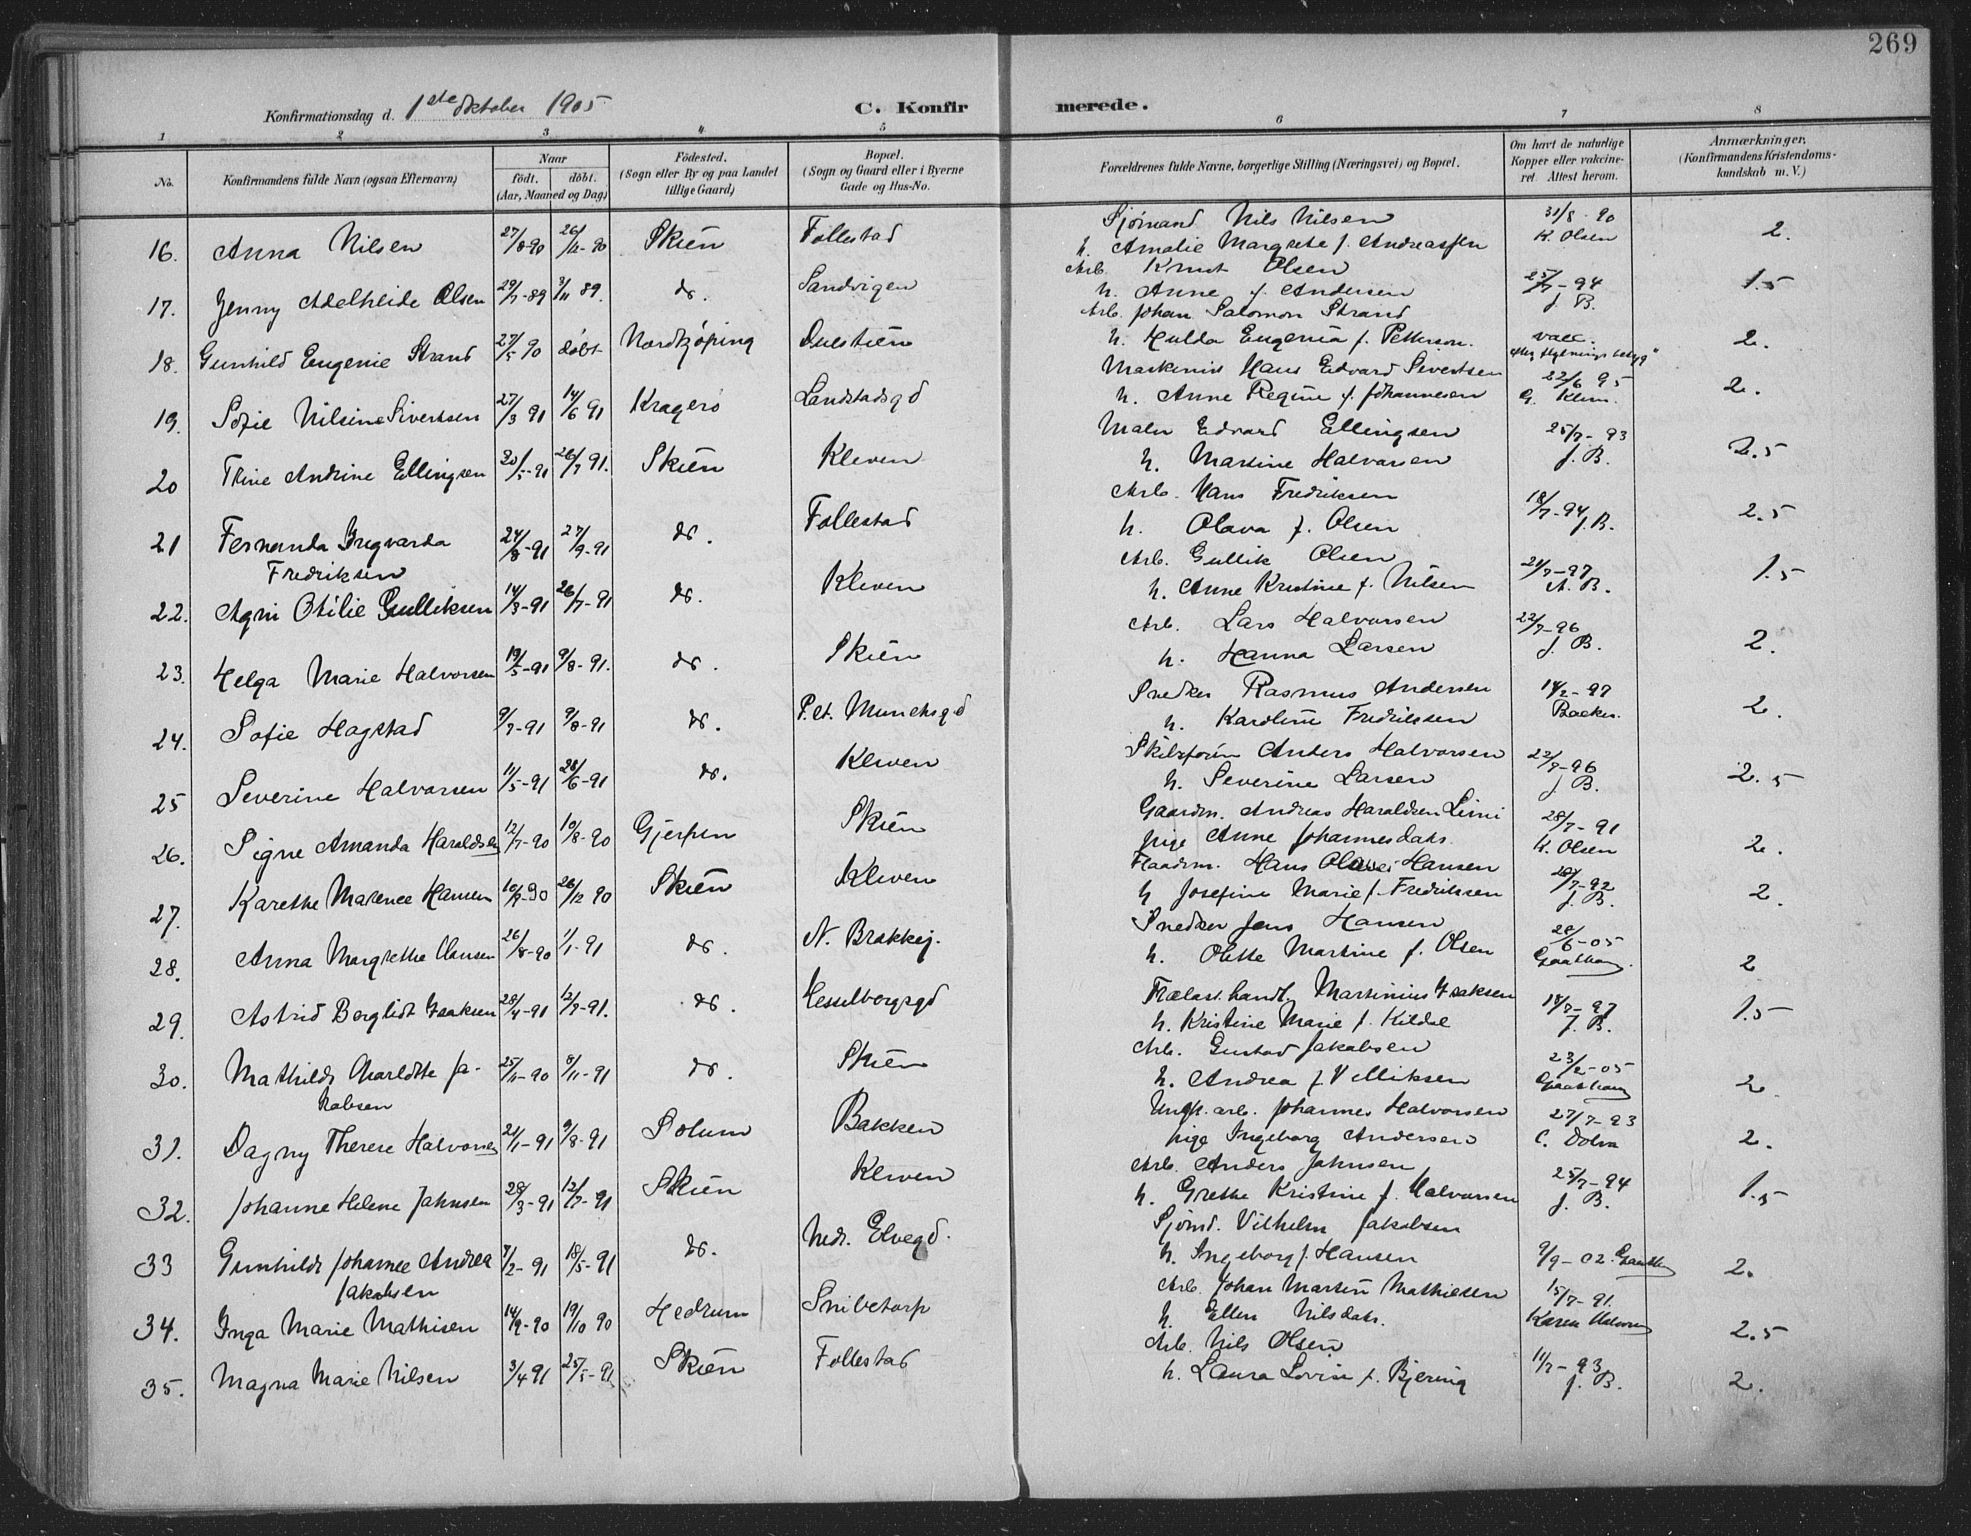 269
Konfirmationsdag d. 1ste Oktober 1905. C. Konfirmerede.
1 2 3 4 5 6 7 8
No. Konfirmandens fulde Navn (ogsaa Efternavn) Naar födt. döbt. (Aar, Maaned og Dag) Födested. (Sogn eller By og paa Landet tillige Gaard) Bopæl. (Sogn og Gaard eller i Byerne Gade og Hus-No. Forældrenes fulde Navne, borgerlige Stilling (Næringsvei) og Bopæl. Om havt de naturlige Kopper eller vakcineret. Attest herom. Anmærkninger. (Konfirmandens Kristendomskundskab m. V.)
16. Anna Nilsen 27/8-90 26/12-90 Skien Follestad Sjömand Nils Nilsen 31/8-90 2.
h. Amalie Margrete f. Andreassen K. Olsen
17. Jenny Adelheide Olsen 29/7-89 3/11 89. do. Sandvigen Arb. Knut Olsen 25/7-94 1.5
h. Anne f. Andersen J. B.
18. Gunhild Eugenie Strand 27/5 90 döbt Nordkjöping Duestien Arb. Johan Salomon Strand vacc. 2.
h. Hulda Eugenia f. Petterson.
19. Sofie Nilsine Sivertsen 27/3 91 14/6 91 Kragerö Landstadsgd Maskinist Hans Edvard Sivertsen 22/6 95 2.
h. Anne Regine f. Johannesen G. Klem.
20 Thine Andrine Ellingsen 30/5-91 26/7 91. Skien Kleven Maler Edvard Ellingsen 25/7-93 2.5
h. Martine Halvorsen J. B.
21 Fernanda Ingvarda 24/8-91 27/9-91 do. Follestad Arb. Hans Fredriksen 18/7-94 J. B. 2.5
Fredriksen h. Olava f. Olsen
22. Agni Otilie Gulliksen 14/3-91 26/7-91 do. Kleven Arb. Gullik Olsen 21/7-97 1.5
h. Anne Kristine f. Nilsen A. B.
23. Helga Marie Halvorsen 19/5-91 9/8-91. do. Skien Arb. Lars Halvorsen 22/7-96 2.
h. Hanna Larsen J. B.
24. Sofie Hagstad 9/7-91 9/8-91 do. P. ct. Munchsgd Snedker Rasmus Andersen 14/2-97 2.
h. Karoline Fredriksen Backer.
25 Severine Halvorsen 11/5-91 28/6-91 do. Kleven Skibsförer Anders Halvorsen 22/7-96 2.5
h. Severine Larsen J. B.
26. Signe Amanda Haraldsen 12/7-90 10/8-90 Gjerpen Skien Gaardm. Andreas Haraldsen Limi 28/7-91 2.
pige Anne Johannesdatr. K. Olsen
27. Karethe Marence Hansen 10/9-90 26/12 90 Skien Kleven Flaadm. Hans Olaves Hansen 20/7-92 2.
h Josefine Marie f. Fredriksen J. B.
28. Anna Margrethe Hansen 26/8-90 1/1-91 do. N. Brakkej. Snedker Jens Hansen 20/6-05 2
h. Olette Martine f. Olsen
29. Astrid Bergliot Isaksen 28/4-91 12/7-91. do. Hesselbergsgd Trælast.handl. Martinius Isaksen 18/7-97 1.5
h. Kristine Marie f. Kildal J. B.
30. Mathilde Charlotte Ja- 25/11-90 8/11-91 do. Skien Arb. Gustav Jakobsen 23/2-05 2.
kobsen h. Andrea f. Villiksen
31. Dagny Therese Halvorsen 21/1-91 9/8-91 Solum Bakken Ungk. arb. Johannes Halvorsen 27/7-93 2.
pige Ingeborg Andersen C. Dolva
32. Johanne Helene Jahnsen 28/3-91 12/7-91 Skien Kleven Arb. Anders Jahnsen 25/7-94 1.5
h. Grethe Kristine f. Halvorsen J. B.
33 Gunhilde Johanne Andrea 7/2-91 18/5-91 do. Nedr. Elvegd. Sjömd. Vilhelm Jakobsen
Jakobsen h. Ingeborg f. Hansen 9/9-02. 2.
34. Inga Marie Mathisen 14/9-90 19/10 90 Hedrum Snibetorp Arb. Johan Martin Mathiesen 15/7-91. 2.5
h. Ellen Nilsdatr.
35. Magna Marie Nilsen 3/4 91 25/5-91 Skien Follestad Arb. Nils Olsen 11/7-93 2.
h. Laura Lovise f. Bjering J. B.